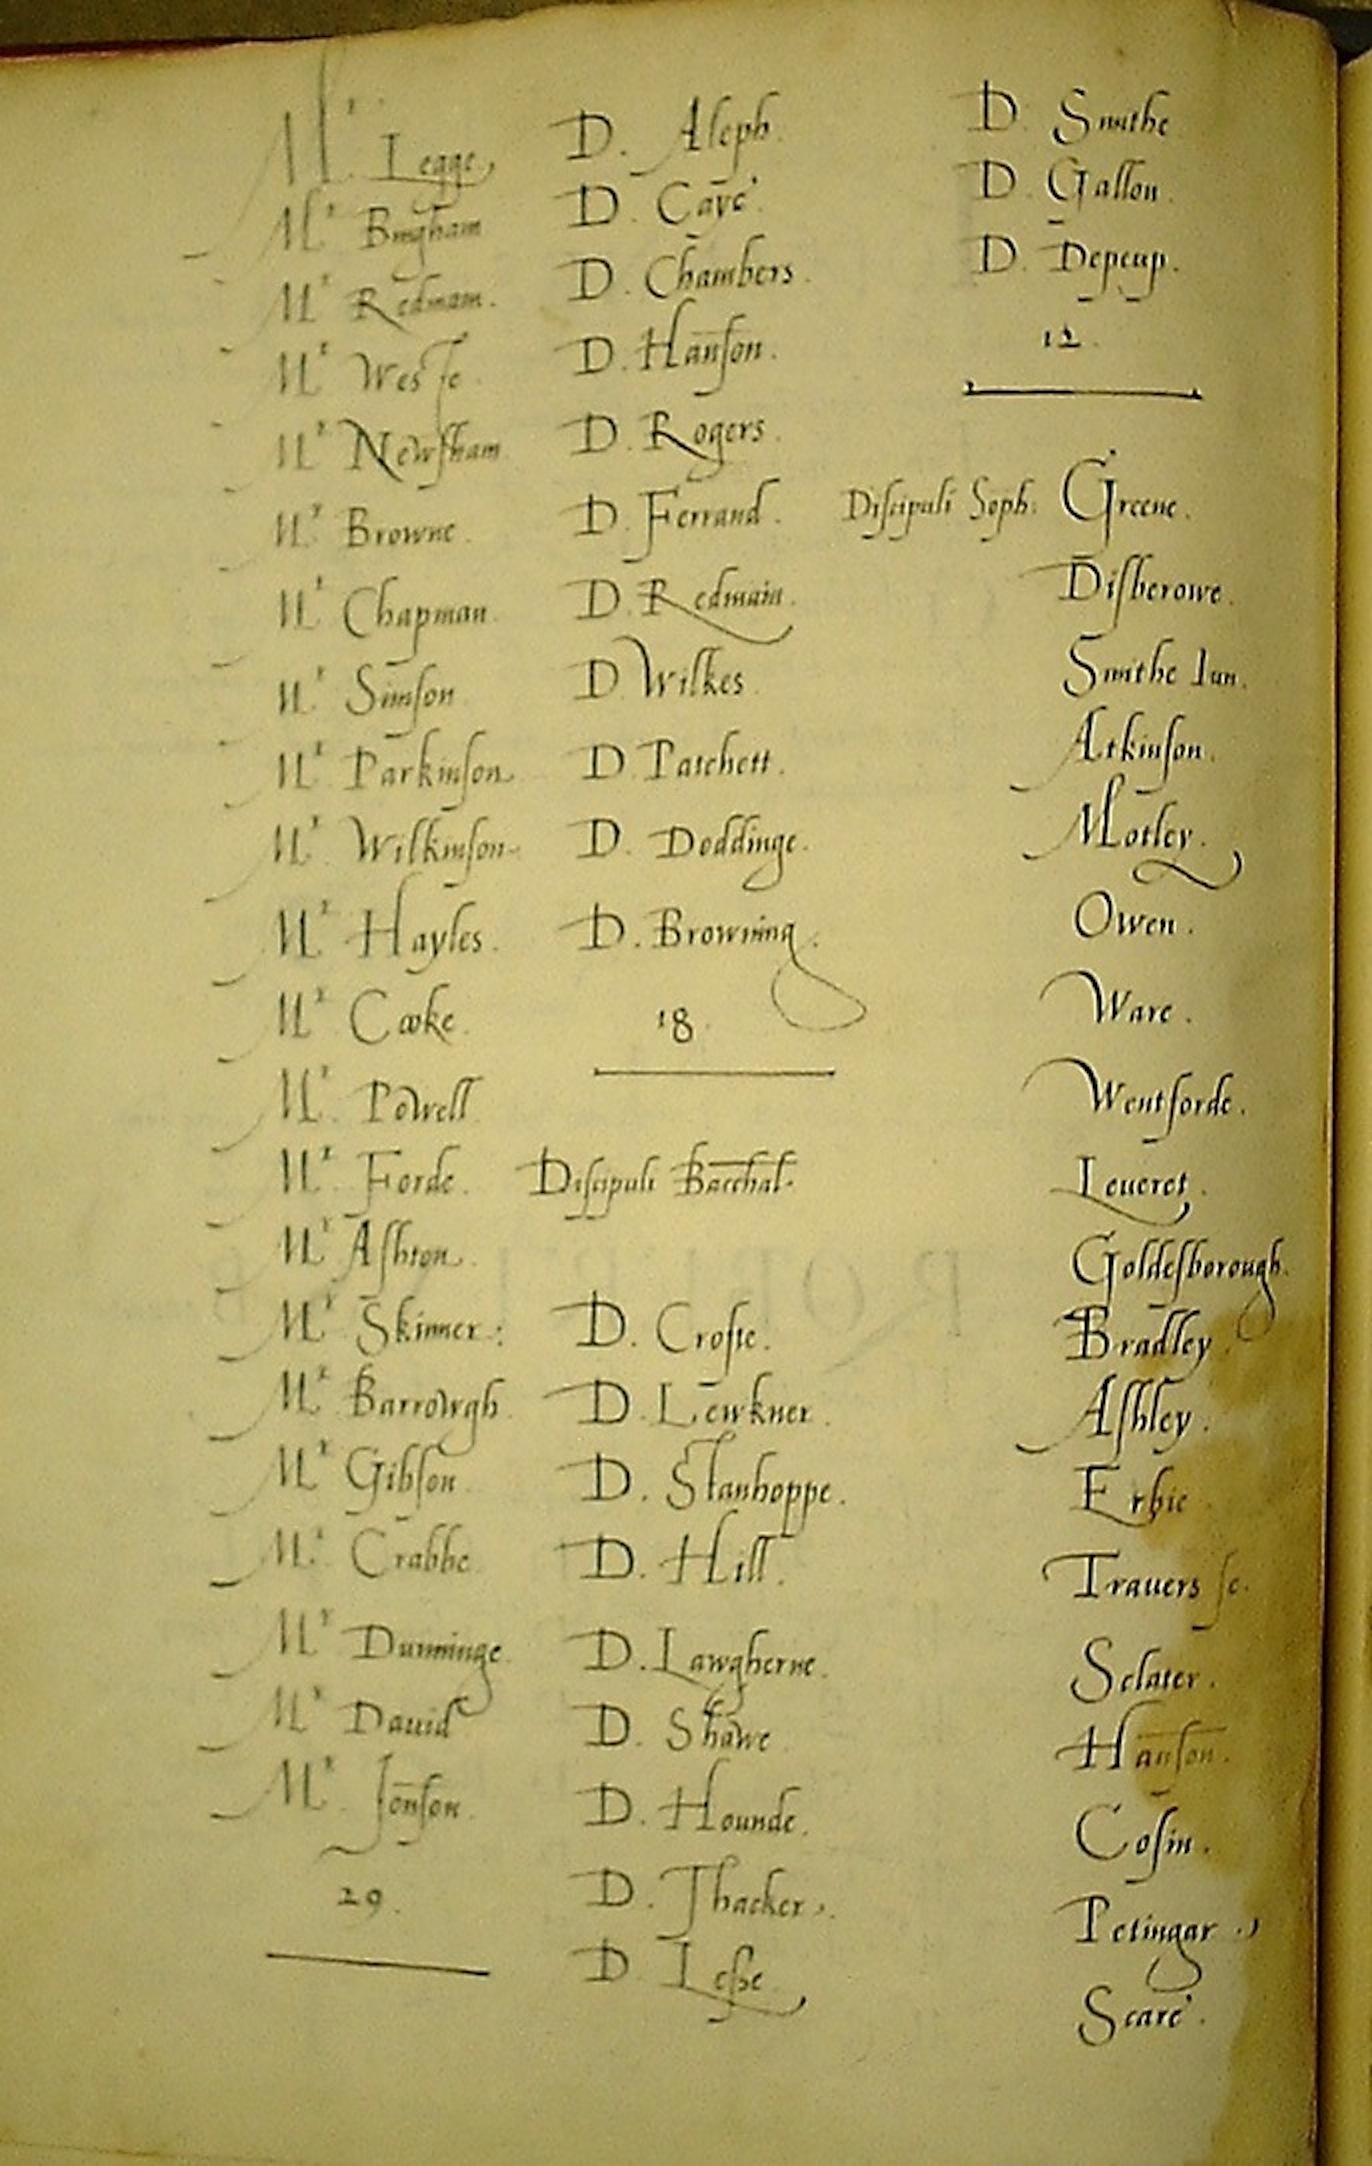 Mr. Legge
Mr Bingham
Mr Redmam.
Mr Weste.
Mr Newsham
Mr Browne.
Mr Chapman.
Mr Simson
Mr Parkinson
Mr. Wilkinson
Mr Hayles.
Mr Cooke.
Mr. Powell
Mr. Forde.
Mr Ashton.
Mr Skinner:
Mr Barrowgh
Mr Gibson
Mr. Crabbe
Mr Dunninge.
Mr David
Mr. Jonson
29.
D. Aleph.
D. Caye.
D. Chambers.
D. Hanson.
D. Rogers
D. Ferrand.
D. Redmain.
D Wilkes.
D. Patchett.
D. Doddinge.
D. Browning.
18.
Discipuli Bacchal.
D. Crofte.
D. Lewkner.
D. Stanhoppe.
D. Hill.
D. Lawgherne.
D. Shawe
D. Hounde.
D. Thacker.
D. Leße
D. Smithe
D. Gallon.
D. Depcup.
12.
Discipuli Soph. Greene.
Disberowe.
Smithe Iun.
Atkinson.
Motley.
Owen.
Ware.
Wentforde.
Leueret.
Goldesborough.
Bradley.
Ashley.
Erbie
Trauers se.
Sclater.
Hanson.
Cosin.
Petingar
Scare.